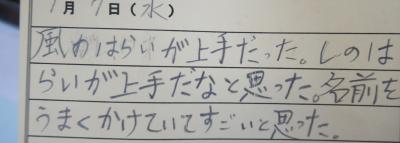 1月9日(水)
風のはらいが上手だった。しのは
らいが上手だなと思った。名前を
うまくかけていてすごいと思った。